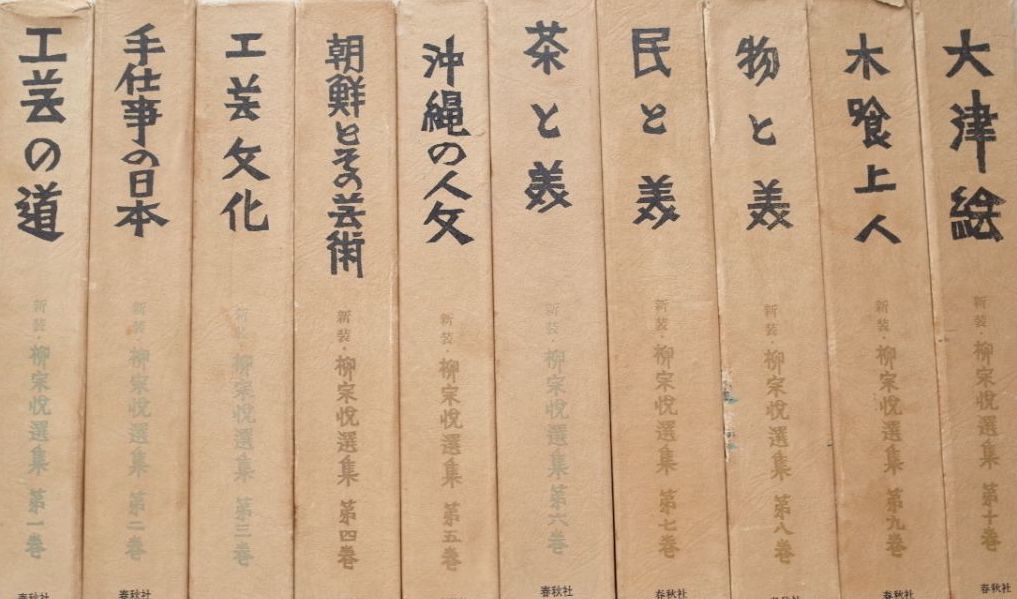 工芸の道
新装・柳宗悦選集 第一巻
春秋社
手仕事の日本
新装・柳宗悦選集 第二巻
春秋社
工芸文化
新装・柳宗悦選集 第三巻
朝鮮とその芸術
新装・柳宗悦選集 第四巻
沖縄の人文
新装・柳宗悦選集 第五巻
茶と美
新装・柳宗悦選集 第六巻
春秋社
民と美
新装・柳宗悦選集 第七巻
春秋社
物と美
新装・柳宗悦選集 第八巻
春秋社
木喰上人
新装・柳宗悦選集 第九巻
春秋社
大津絵
新装・柳宗悦選集 第十巻
春秋社